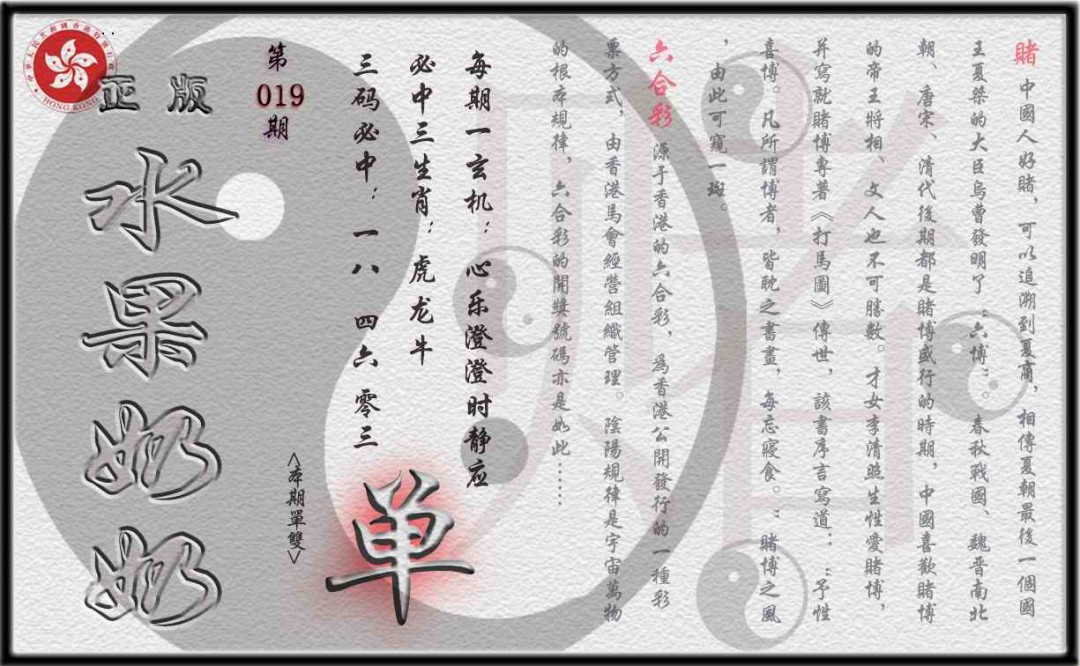 賭 中國人好賭，可以追溯到夏商，相傳夏朝最後一個國
王夏桀的大臣烏曹發明了“六博”。春秋戰國、魏晉南北
朝、唐宋、清代後期都是賭博盛行的時期，中國喜歡賭博
的帝王將相、文人也不可勝數。才女李清照生性愛賭博，
并寫就賭博專著《打馬圖》傳世，該書序言寫道：“予性
喜博。凡所謂博者，皆耽之書畫，每忘寢食。”賭博之風
，由此可窺一斑。
六合彩 源于香港的六合彩，為香港公開發行的一種彩
票方式，由香港馬會經營組織管理。陰陽規律是宇宙萬物
的根本規律，六合彩的開獎號碼亦是如此……
每期一玄机：心乐澄澄时静应
必中三生肖：虎龙牛
三码必中：一八 四六 零三
单
<本期單雙>
第
019
期
正版
水果奶奶
HONG KONG